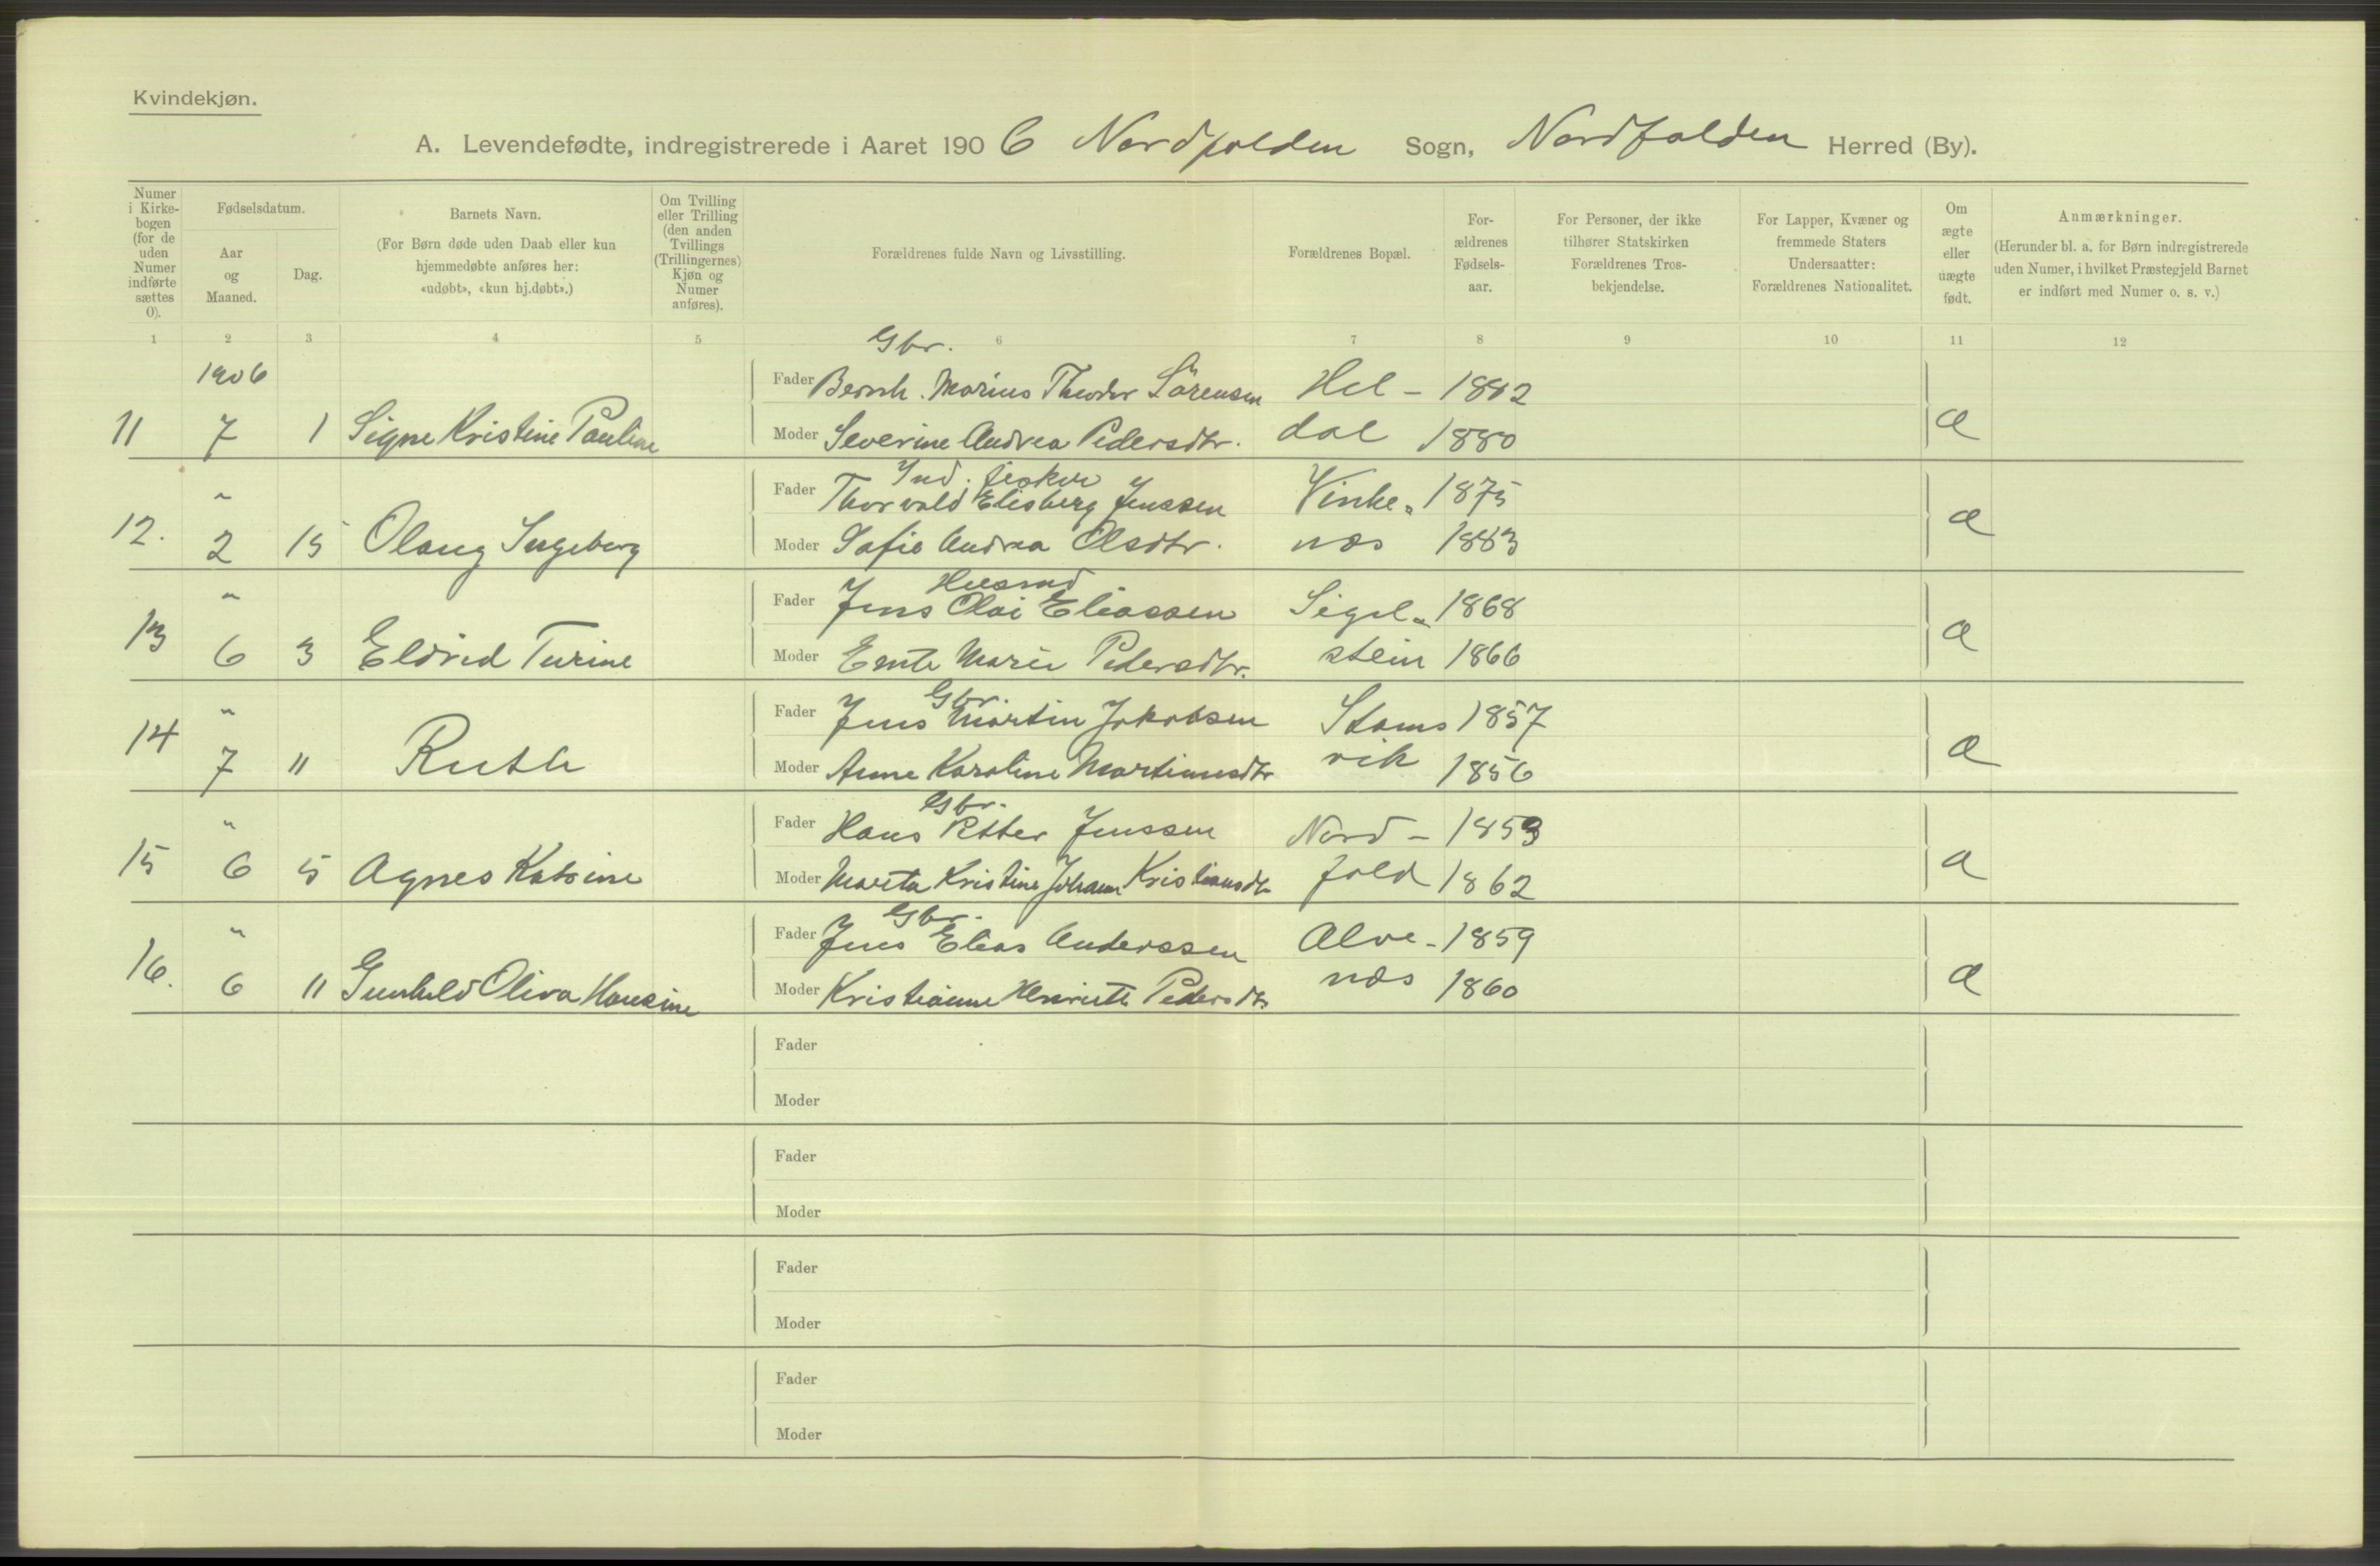 Kvindekjøn.
A. Levendefødte, indregistrerede i Aaret 1906 Nordfolden Sogn, Nordfolden Herred (By).
Numer i Kirkebogen (for de uden Numer indførte sættes 0).
Fødselsdatum.
Aar og Maaned.
Dag.
Barnets Navn.
(For Børn døde uden Daab eller kun hjemmedøbte anføres her: «udøbt», «kun hj.døbt».)
Om Tvilling eller Trilling (den anden Tvillings (Trillingernes) Kjøn og Numer anføres).
Forældrenes fulde Navn og Livsstilling.
Forældrenes Bopæl.
Forældrenes Fødselsaar.
For Personer, der ikke tilhører Statskirken Forældrenes Trosbekjendelse.
For Lapper, Kvæner og fremmede Staters Undersaatter: Forældrenes Nationalitet.
Om ægte eller uægte født.
Anmærkninger.
(Herunder bl. a. for Børn indregistrerede uden Numer, i hvilket Præstegjeld Barnet er indført med Numer o. s. v.)
1 2 3 4 5 6 7 8 9 10 11 12
Gbr.
1906 Fader Bernh. Marius Theodor Sörensen Hel- 1882
11 7 1 Signe Kristine Pauline Moder Severine Andrea Pedersdtr. dal 1880 æ
Ind. fisker
" Fader Thorvald Elisberg Jenssen Vinke- 1875
12. 2 15 Olaug Ingeborg Moder Sofie Andrea Olsdtr. næs 1883 æ
Husmd
" Fader Jens Olai Eliassen Sigel- 1868
13 6 3 Eldrid Turine Moder Marie Pedersdtr. stein 1866 æ
Gbr.
" Fader Jens Martin Jakobsen Stams 1857
14 7 11 Ruth Moder Anne Karoline Martinusdtr vik 1856 æ
Gbr.
" Fader Hans Petter Jenssen Nord- 1853
15 6 5 Agnes Katrine Moder Marta Kristine Johann Kristiansdtr fold 1862 æ
Gbr.
" Fader Jens Elias Anderssen Alve- 1859
16. 6 11 Gunhild Oliva Hansine Moder Kristianne Henriette Pedersdtr næs 1860 æ
Fader
Moder
Fader
Moder
Fader
Moder
Fader
Moder